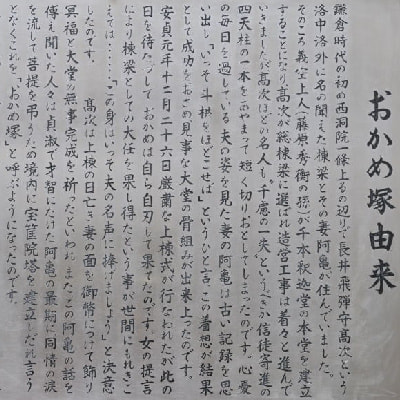 おかめ塚由来
鎌倉時代の初め西洞院一條上るの辺りで長井飛騨守高次という
洛中洛外に名の聞えた棟梁とその妻阿亀が住んでいました。
そのころ義空上人(藤原秀衡の孫)が千本釈迦堂の本堂を建立
することになり高次が総棟梁に選ばれ造営工事は着々と進んで
いきましたが高次ほどの名人も「千慮の一失」というべきか信徒寄進の
四天柱の一本をあやまって短く切りおとしてしまったのです。心憂
の毎日を過している夫の姿を見た妻の阿亀は古い記録を思
い出し「いっそ斗栱をほどこせば」というひと言、この着想が結果
として成功をおさめ見事な大堂の骨組みが出来上ったのです。
安貞元年十二月二十六日厳粛な上棟式が行なわれたが此の
日を待たずしておかめは自ら自刃して果てたのです。女の提言
により棟梁としての大任を果し得たという事が世間にもれきこ
えては…‥「この身はいっそ夫の名声に捧げましょう」と決意
したのです。 高次は上棟の日亡き妻の面を御幣につけて飾り
冥福と大堂の無事完成を祈ったといわれまたこの阿亀の話を
伝え聞いた人々は貞淑で才智にたけた阿亀の最期に同情の涙
を流して菩提を弔うため境内に宝篋院塔を建立しだれ言う
となくこれを「おかめ塚」と呼ぶようになったのです。